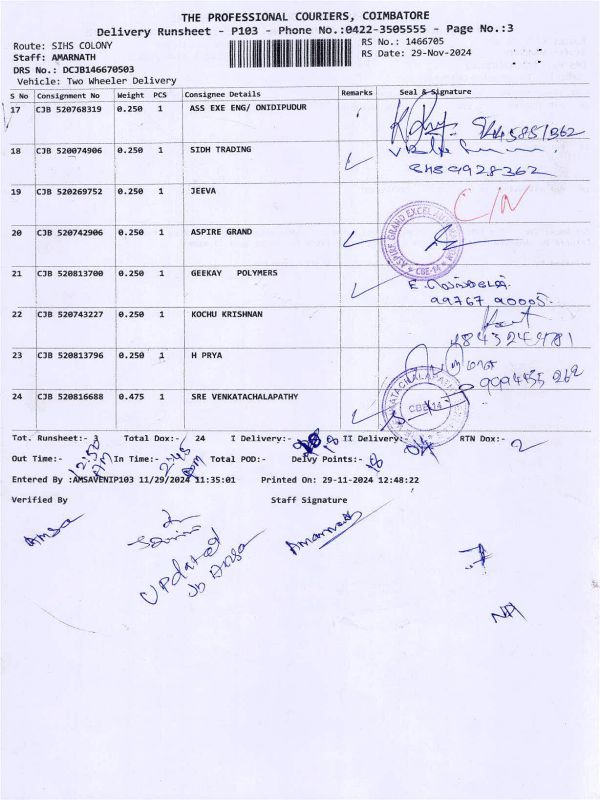 THE PROFESSIONAL COURIERS, COIMBATORE
Delivery Runsheet - P103 - Phone No.:0422-3505555 - Page No.:3
Route: SIHS COLONY
RS No.: 1466705
Staff: AMARNATH
RS Date: 29-Nov-2024
DRS No.: DCJB146670503
Vehicle: Two Wheeler Delivery
S No Consignment No Weight PCS Consignee Details Remarks Seal & Signature
17 CJB 520768319 0.250 1 ASS EXE ENG/ ONIDIPUDUR
18 CJB 520074906 0.250 1 SIDH TRADING
8489928362
19 CJB 520269752 0.250 1 JEEVA
C/N
20 CJB 520742906 0.250 1 ASPIRE GRAND
CBE-14
21 CJB 520813700 0.250 1 GEEKAY POLYMERS
99767 90005
22 CJB 520743227 0.250 1 KOCHU KRISHNAN
23 CJB 520813796 0.250 1 H PRYA
24 CJB 520816688 0.475 1 SRE VENKATACHALAPATHY
CBE-14
Tot. Runsheet:- 3 Total Dox:- 24 I Delivery:- 18 II Delivery:- 04 RTN Dox:- 2
Out Time:- 12:50 In Time:- 2:45 Total POD:- Delvy Points:- 18
Entered By :AMSAVENIP103 11/29/2024 11:35:01 Printed On: 29-11-2024 12:48:22
Verified By Staff Signature
Amsa
Amarnath
Updated
NA